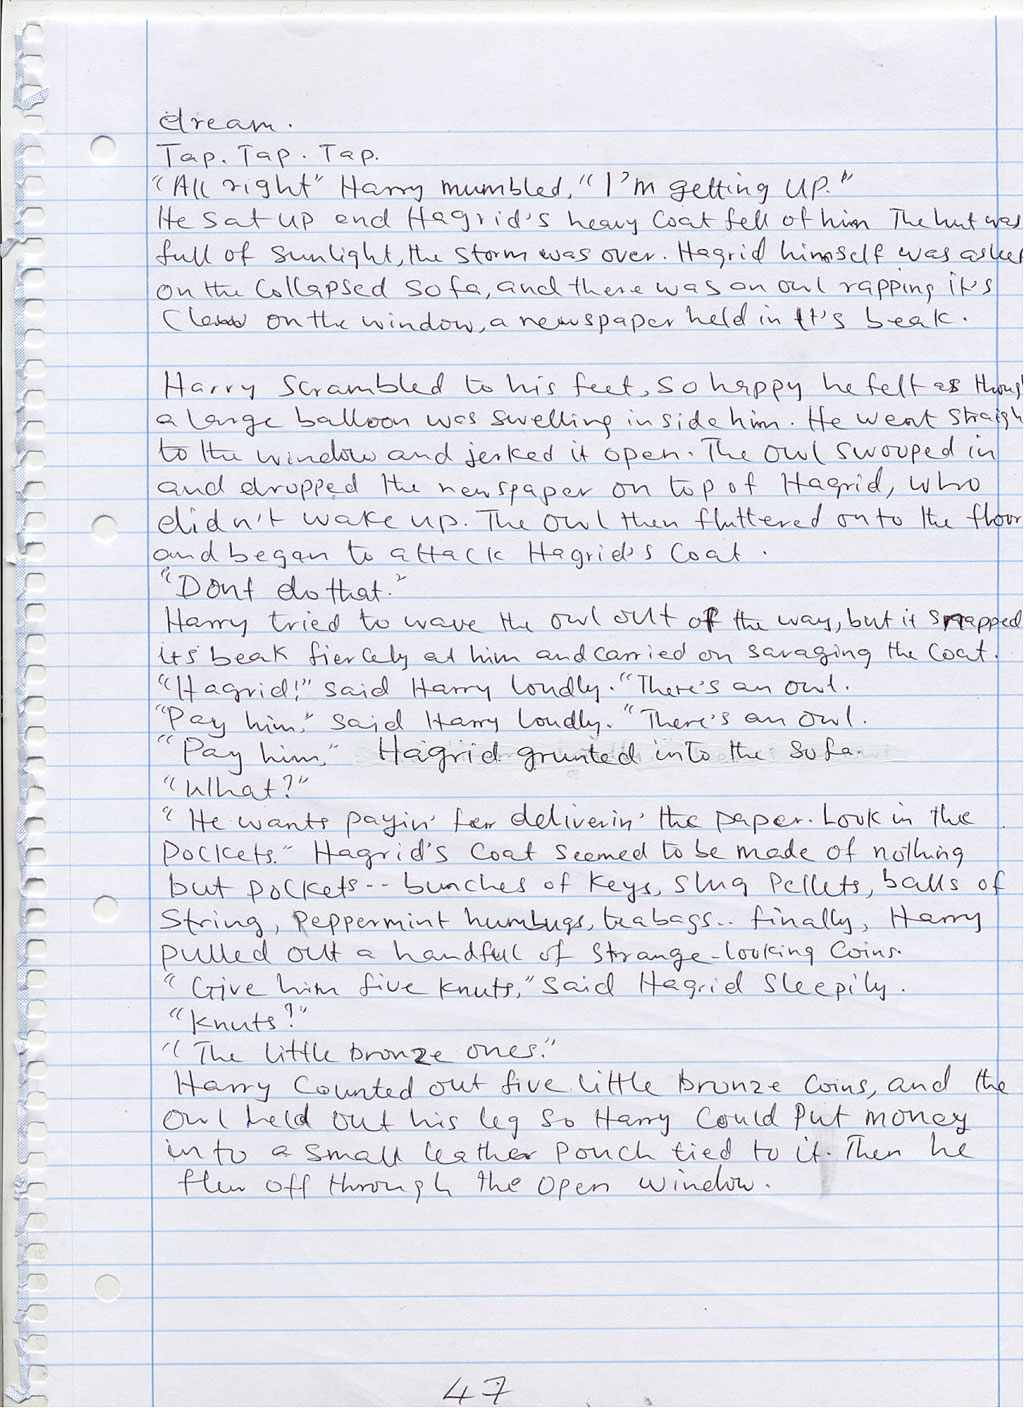 dream.
Tap. Tap. Tap.
"All right" Harry mumbled, "I'm getting up."
He sat up and Hagrid's heavy coat fell of him The hut was
full of sunlight, the storm was over. Hagrid himself was aslee
on the collapsed sofa, and there was an owl rapping it's
claw on the window, a newspaper held in it's beak.
Harry scrambled to his feet, so happy he felt as thoug
a large balloon was swelling inside him. He went straigh
to the window and jerked it open. The owl swooped in
and dropped the newspaper on top of Hagrid, who
didn't wake up. The owl then fluttered onto the floor
and began to attack Hagrid's coat.
"Dont do that."
Harry tried to wave the owl out of the way, but it snapped
its beak fiercely at him and carried on savaging the coat.
"Hagrid!" said Harry loudly. "There's an owl.
"Pay him," said Harry loudly. "There's an owl.
"Pay him," Hagrid grunted into the sofa.
"What?"
"He wants payin' fer deliverin' the paper. Look in the
pockets." Hagrid's coat seemed to be made of nothing
but pockets -- bunches of keys, slug pellets, balls of
string, peppermint humbugs, teabags.. finally, Harry
pulled out a handful of strange-looking coins.
"Give him five knuts," said Hagrid sleepily.
"Knuts?"
"The little bronze ones."
Harry counted out five little bronze coins, and the
owl held out his leg so Harry could put money
into a small leather pouch tied to it. Then he
flew off through the open window.
47